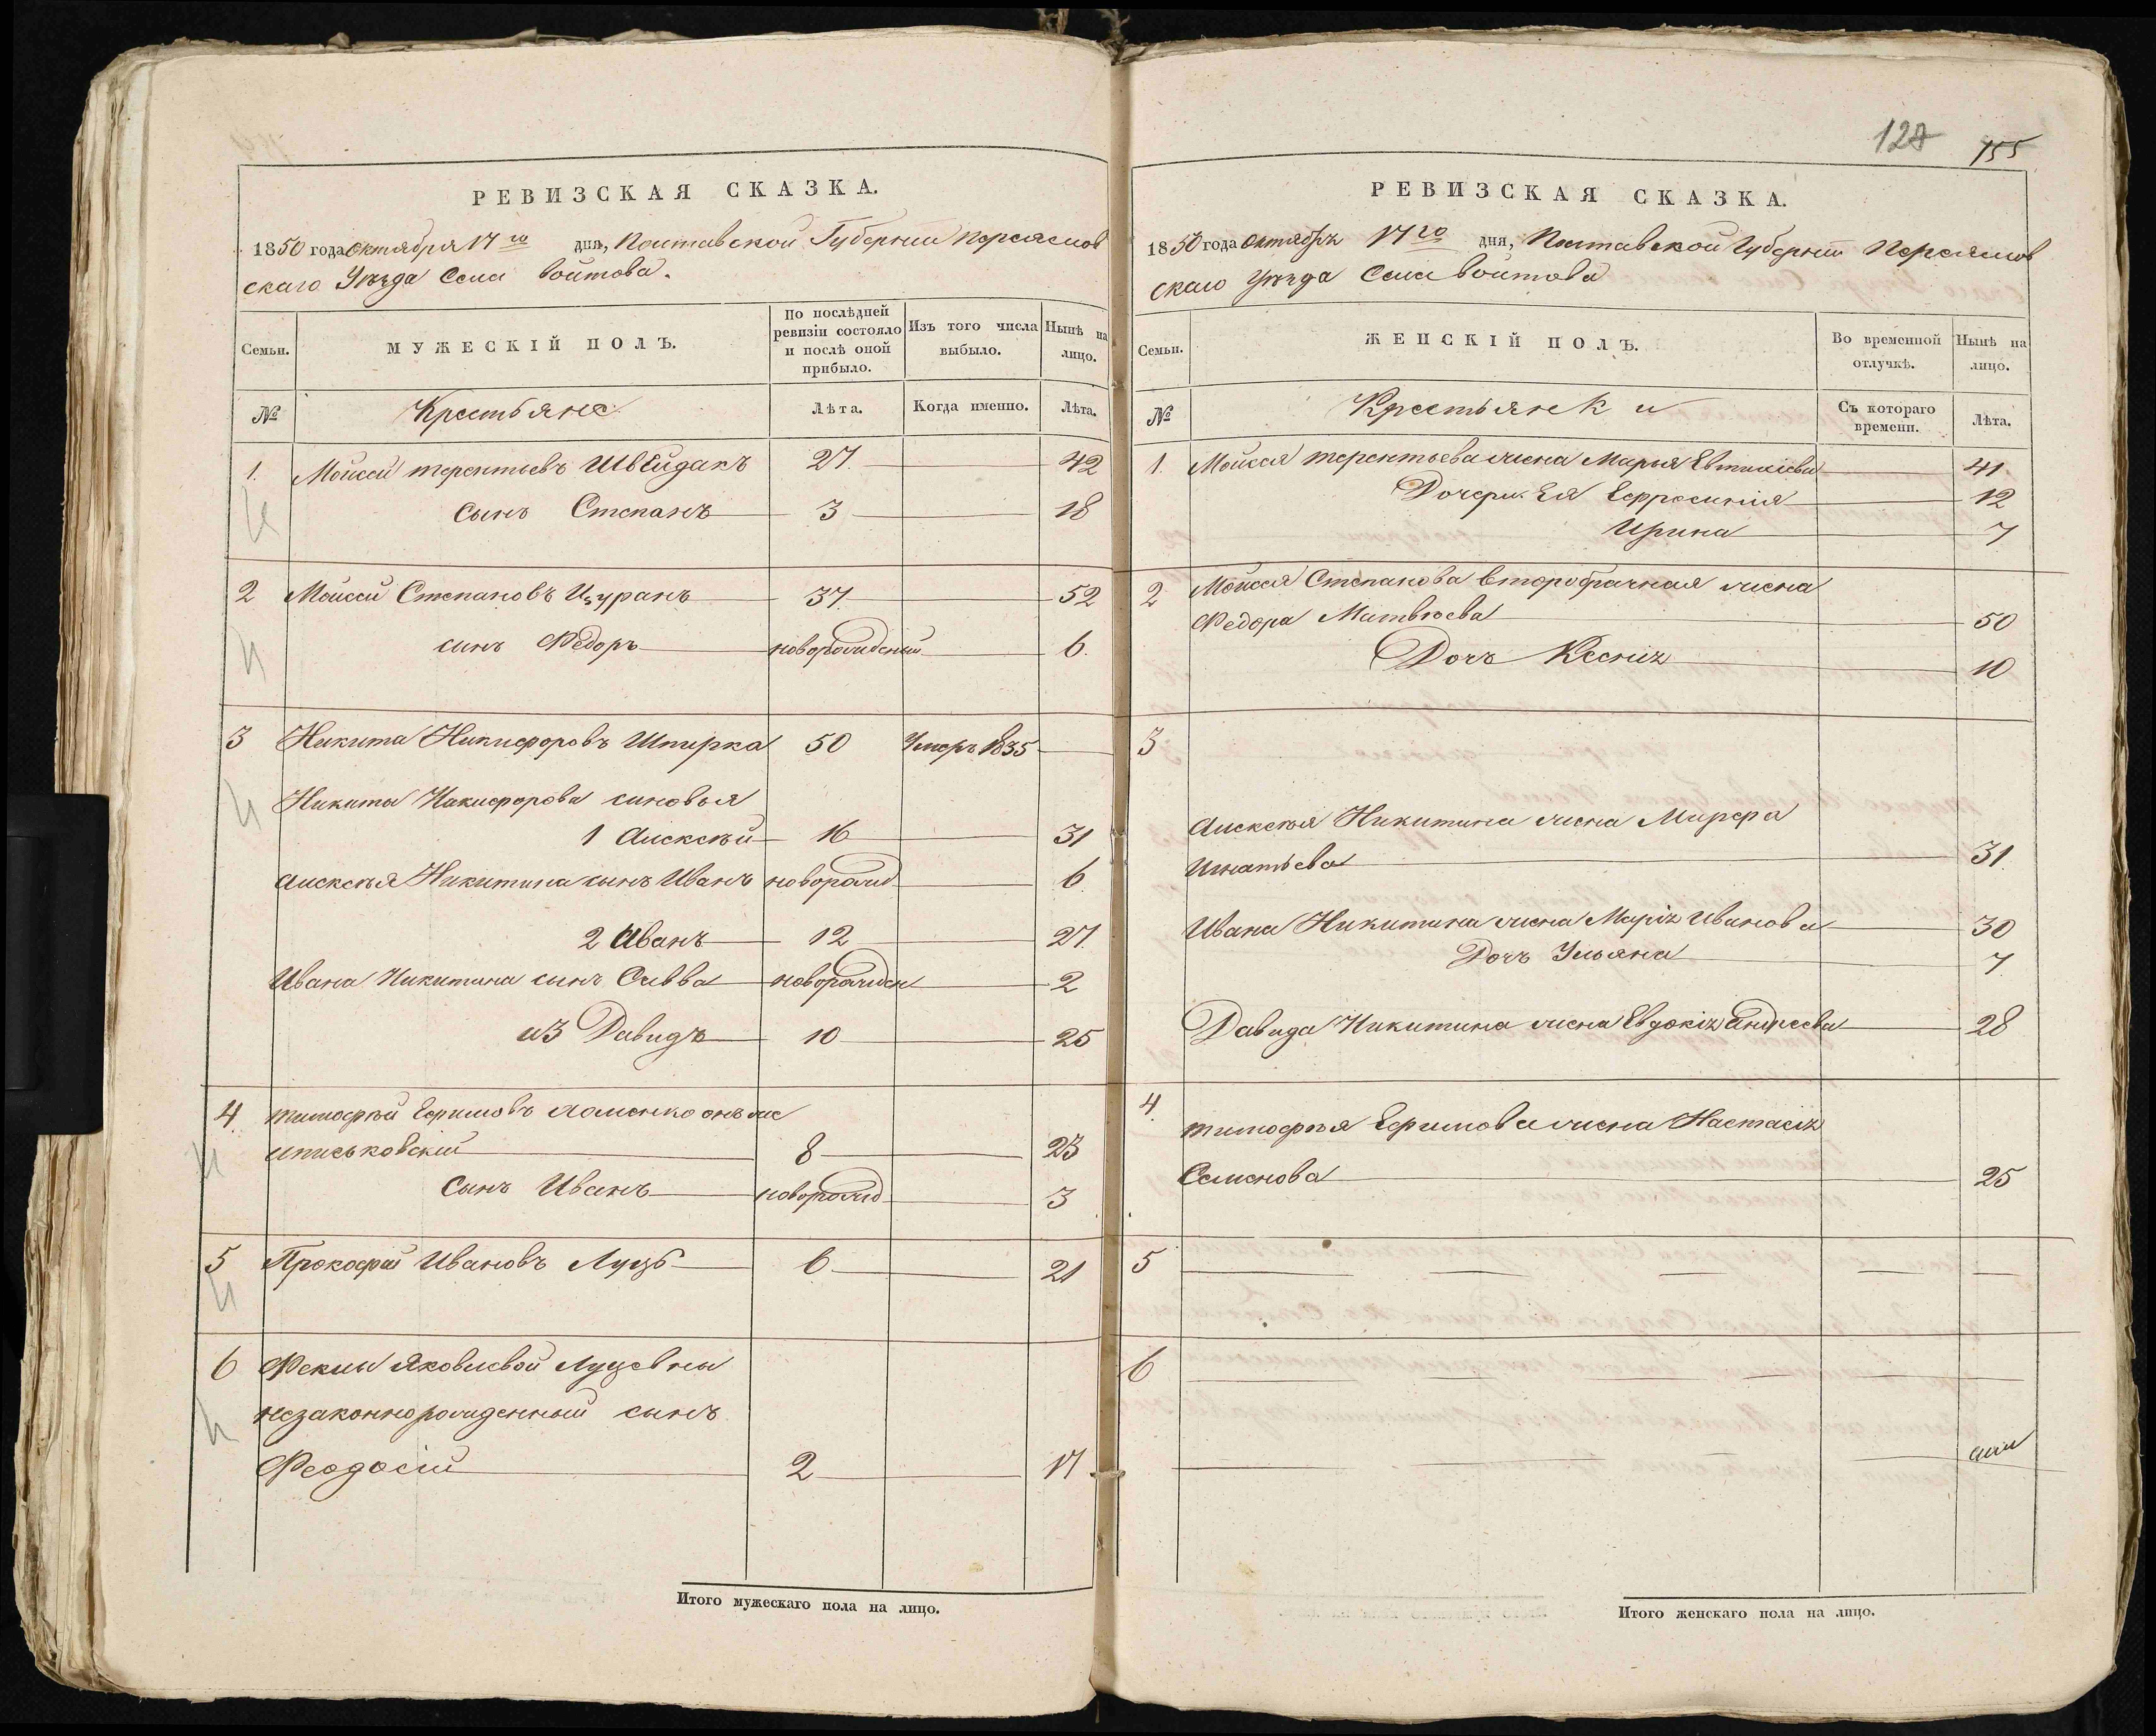 РЕВИЗСКАЯ СКАЗКА.
1850 года Октября 17го дня, Полтавской Губернии Переяслов
скаго Уѣзда Села Войтова.
Семьи.
МУЖЕСКІЙ ПОЛЪ.
По послѣдней ревизіи состояло и послѣ оной прибыло.
Изъ того числа выбыло.
Нынѣ на лицо.
№
Крестьяне
Лѣта.
Когда именно.
Лѣта.
1. Мойсей Терентьевъ Швейдакъ 27. 42
сынъ Степанъ 3 18
2 Мойсей Степановъ Цуранъ 37 52
сынъ Федоръ новорожденный 6.
3 Никита Никифоровъ Шпирка 50 Умеръ 1835
Никиты Никифорова сыновья
1 Алексѣй 16 31
Алексѣя Никитина сынъ Иванъ новорожд 6.
2 Иванъ 12 27.
Ивана Никитина сынъ Савва новорожден 2
3 Давидъ 10 25
4. Тимофѣй Ефимовъ онъ же
8 23
Сынъ Иванъ новорожд 3
5 Прокофій Ивановъ Луць 6 21
6 Феклы Яковлевой Луцевны
незаконнорожденный сынъ
Феодосій 2 17
Итого мужескаго пола на лицо.
128 155
РЕВИЗСКАЯ СКАЗКА.
1850 года Октября 17го дня, Полтавской Губерніи Переяслов
скаго Уѣзда Села Войтова
Семьи.
ЖЕНСКІЙ ПОЛЪ.
Во временной отлучкѣ.
Нынѣ на лицо.
№
Крестьянки
Съ котораго времени.
Лѣта.
1. Мойсея Терентьева жена Марья Евтихіева 41.
Дочери Ея Ефросинія 12
Ирина 7
2 Мойсея Степанова второбрачная жена
Федора Матвѣева 50
Дочь Ксенія 10
3
Алексѣя Никитина жена Марфа
Игнатьева 31.
Ивана Никитина жена Марія Иванова 30
Дочь Ульяна 7
Давида Никитина жена Евдокія Андреева 28
4. Тимофѣя Ефимова жена Настасія
Семенова 25
5
6
Итого женскаго пола на лицо.